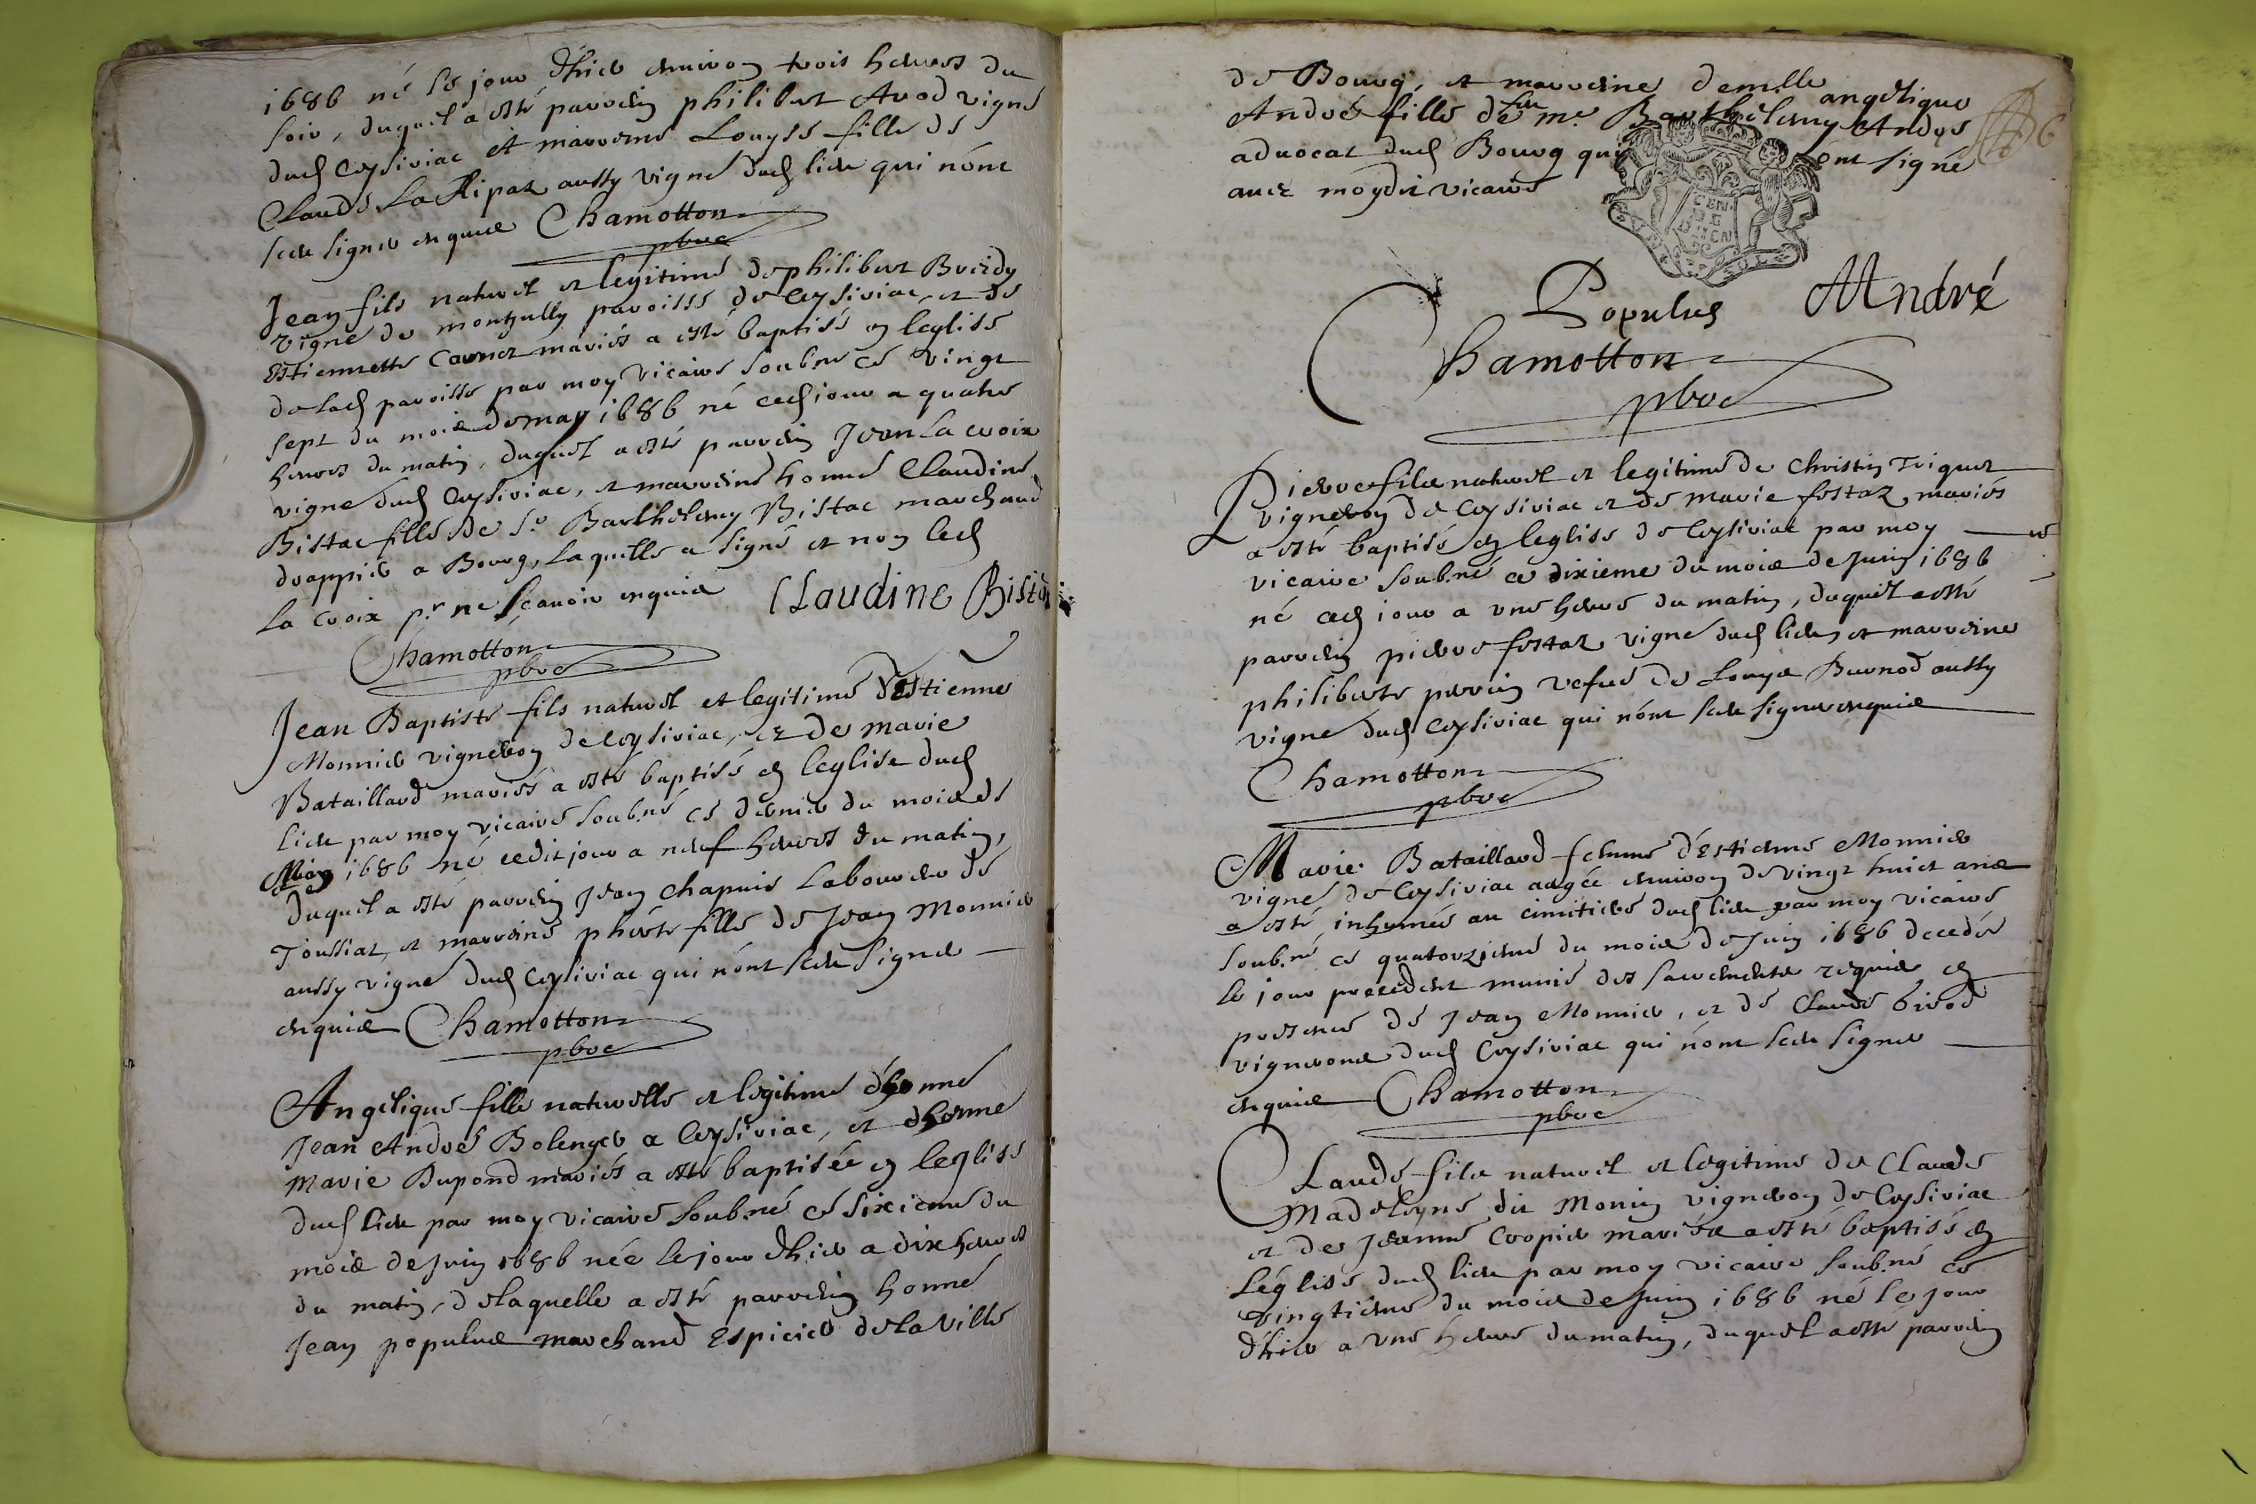 1686 né le jour d'hier environ trois heures du
soir, duquel a esté parrein philibert Avod vigne
dud Ceysiriac et marreine Louyse fille de
Claude La Ripaz aussy vigne dud lieu qui nont
sceu signer enquis Chamotton
pbre
Jean fils naturel et legitime de philibert Breidy
vigne de montjully paroisse de Ceysiriac, et de
Estiennette Carner mariés a esté baptisé en leglise
de lad paroisse par moy vicaire soubné ce vingt
sept du mois de may 1686 né ced jour a quatre
heures du matin, duquel a esté parrein Jean La croix
vigne dud Ceysiriac, et marreine honne Claudine
Bistac fille de Sr Barthelemy Bistac marchand
drappier a Bourg, laquelle a signé et non led
La Croix pr ne scavoir enquis Claudine Bistac
Chamotton
pbre
Jean Baptiste fils naturel et legitime d'Estienne
Monnier vigneron de Ceysiriac, et de marie
Bataillard mariés a esté baptisé en leglise dud
lieu par moy vicaire soubné ce dernier du mois de
May 1686 né cedit jour a neuf heures du matin,
duquel a esté parrein Jean Chapuis Laboureur de
Toussiat, et marreine pherte fille de Jean Monnier
aussy vigne dud Ceysiriac qui nont sceu signer
enquis Chamotton
pbre
Angelique fille naturelle et legitime d'honne
Jean André Bolenger a Ceysiriac, et d'honne
Marie Dupond mariés a esté baptisée en leglise
dud lieu par moy vicaire soubné ce sixieme du
mois de Juin 1686 née le jour d'hier a dix heures
du matin, de laquelle a esté parrein honne
Jean populus marchand Espicier de la ville
de Bourg, et marreine demlle angelique
André fille de feu me. Barthelemy André
advocat dud Bourg qui ont signé
avec moydit vicaire
6
CEN
DE
Populus André
Chamotton
pbre
Pierre fils naturel et legitime de Christin Triquet
vigneron de Ceysiriac et de marie fostaz, mariés
a esté baptisé en leglise de Ceysiriac par moy
vicaire soubné ce dixieme du mois de Juin 1686
né ced jour a une heure du matin, duquel a esté
parrein pierre fostaz vigne dud lieu, et marreine
philiberte perrin vefue de Louys Burnod aussy
vigne dud Ceysiriac qui nont sceu signer enquis
Chamotton
pbre
Marie Bataillard femme d'Estienne Monnier
vigne de Ceysiriac aagée environ de vingt huict ans
a esté inhumée au cimitiere dud lieu par moy vicaire
soubné ce quatorzieme du mois de Juin 1686 decedée
le jour precedent munie des sacrements requis en
presence de Jean Monnier, et de Claude Girod
vignerons dud Ceysiriac qui nont sceu signer
enquis Chamotton
pbre
Claude fils naturel et legitime de Claude
Madeleyne dit Monin vigneron de Ceysiriac
et de Jeanne Cropier mariés a esté baptisé en
léglise dud lieu par moy vicaire soubné ce
vingtieme du mois de Juin 1686 né le jour
d'hier a une heure du matin, duquel a esté parrein